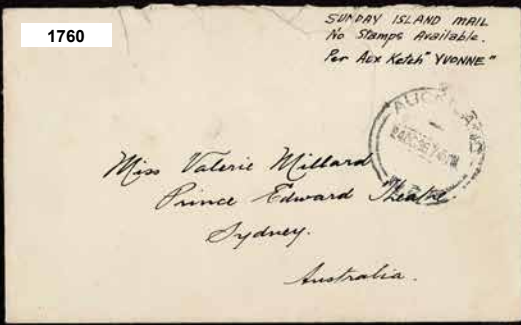 1760
SUNDAY ISLAND MAIL
No Stamps Available.
Per Aux Ketch "YVONNE"
AUCKLAND
Miss Valerie Millard
Prince Edward Theatre.
Sydney.
Australia.